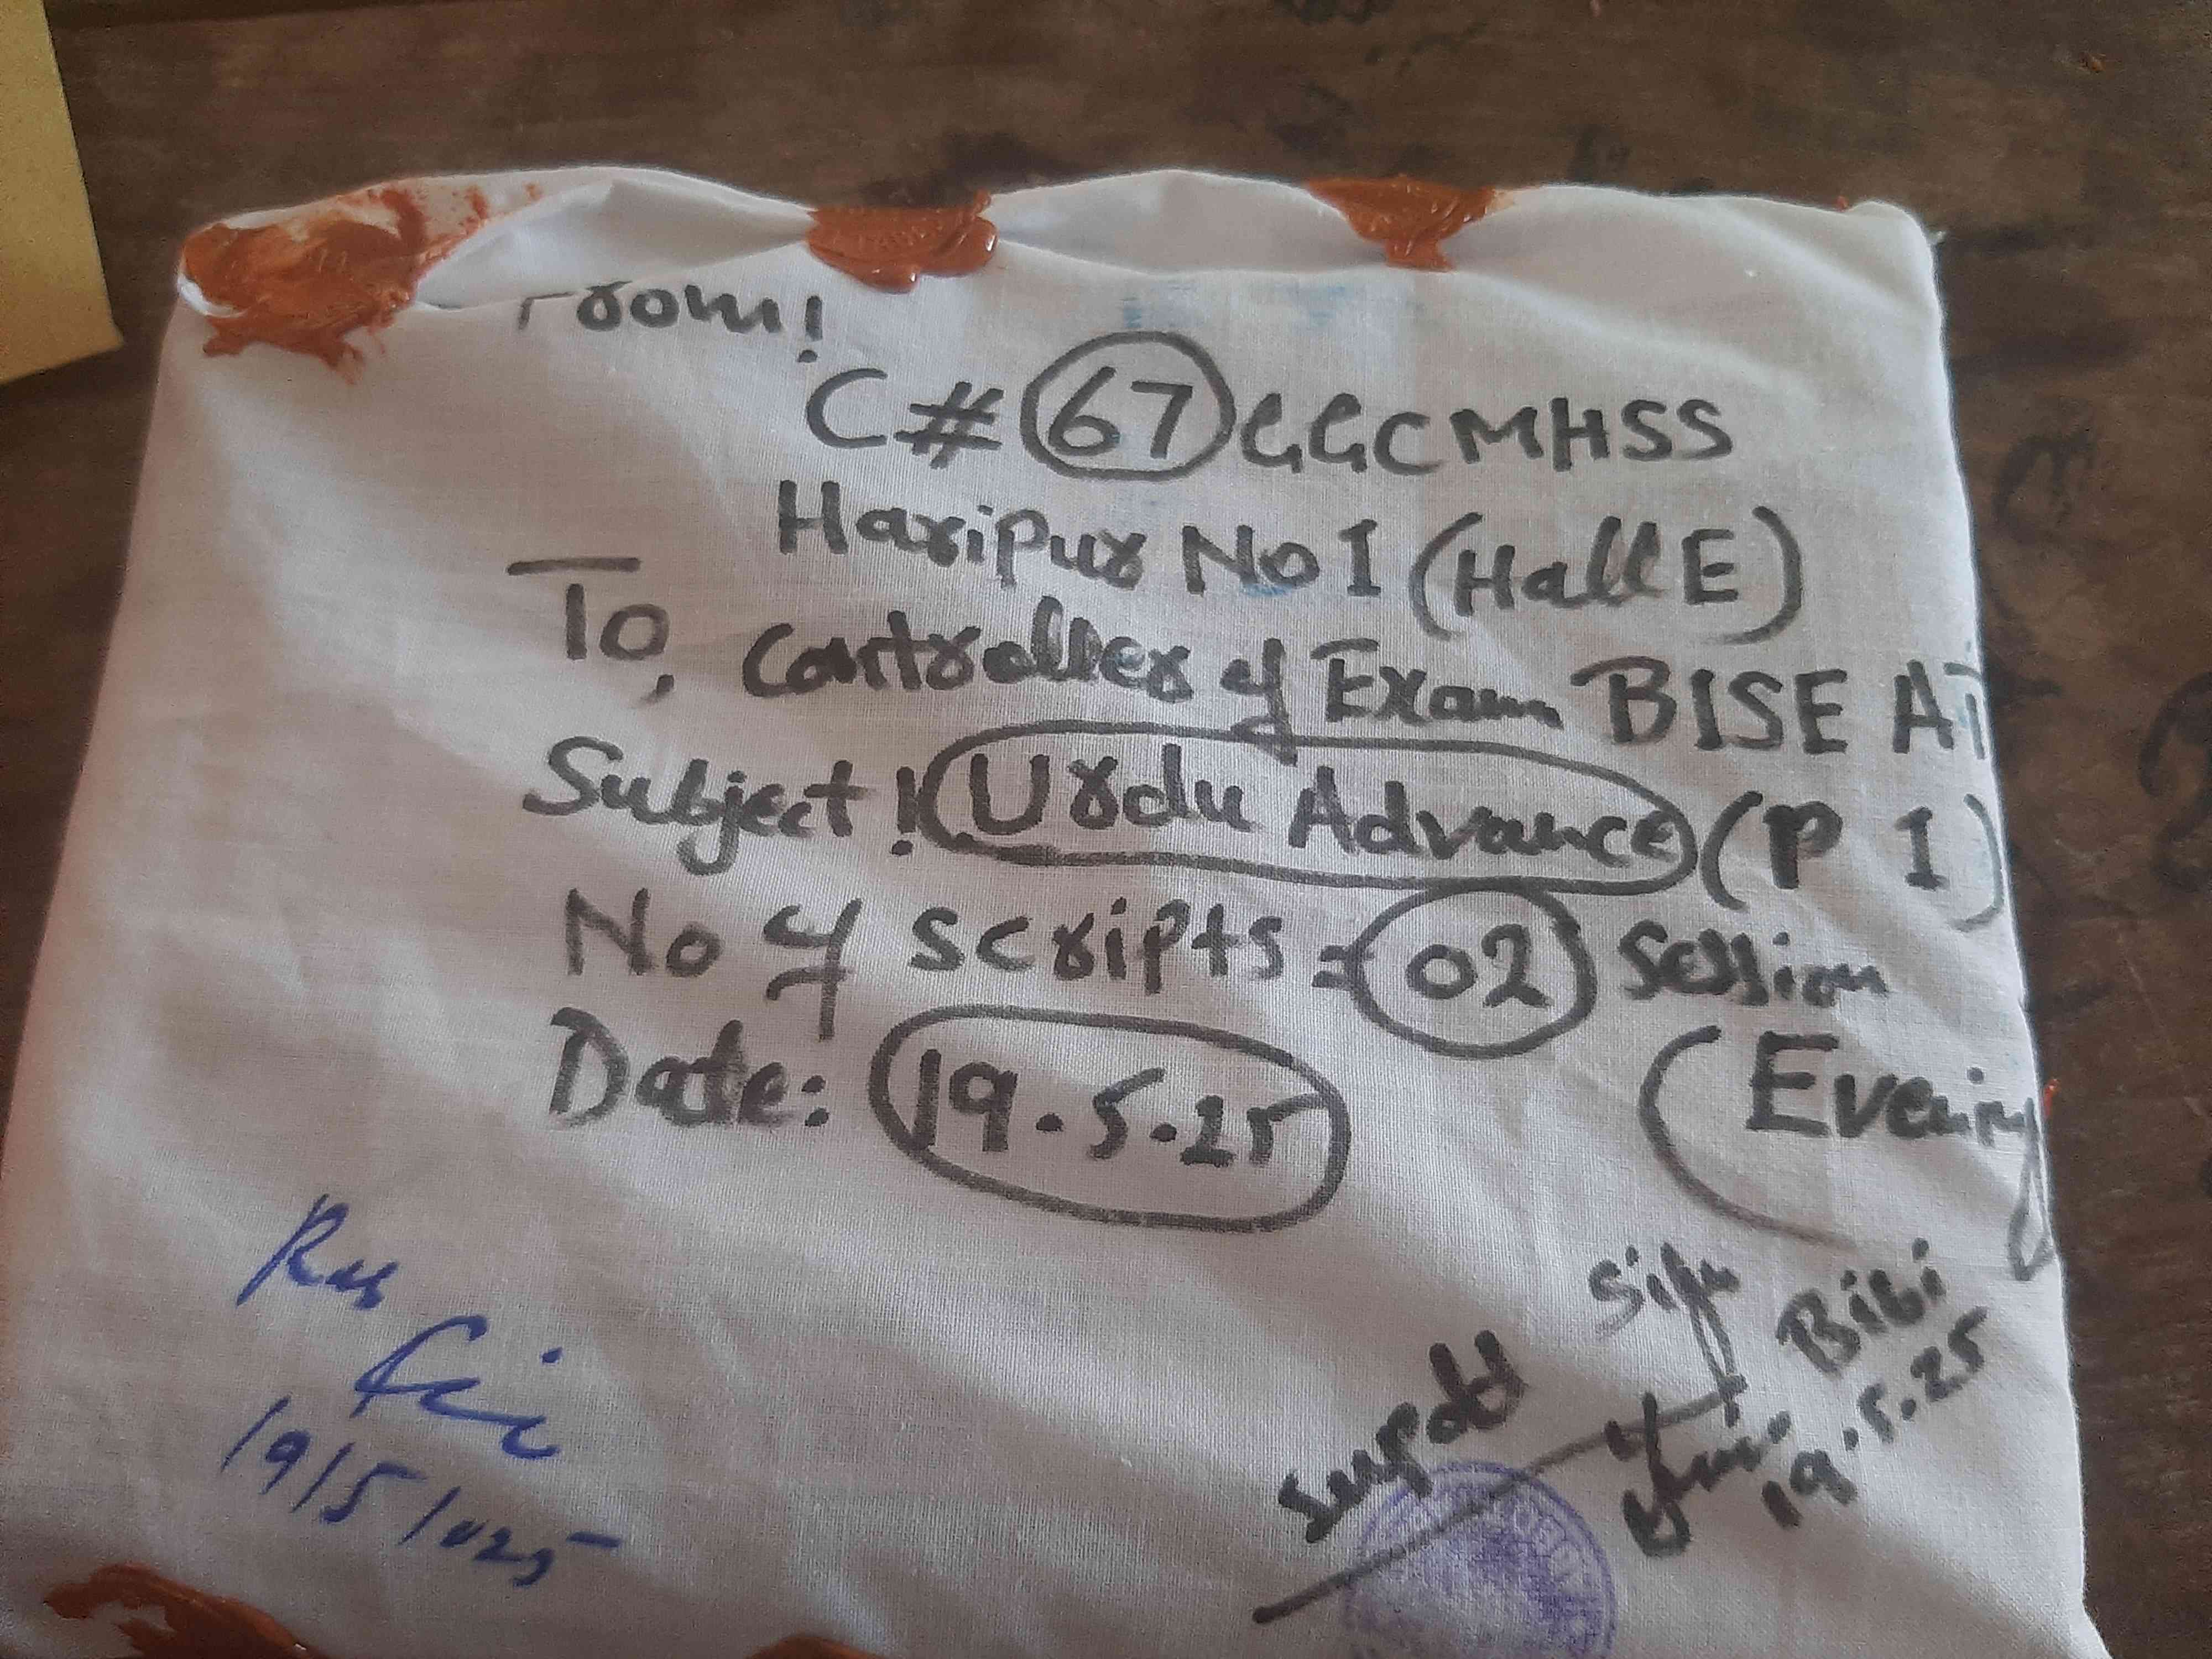 From!
C# 67 GGCMHSS
Haripur No I (Hall E)
To, Controller of Exam BISE AT
Subject! Urdu Advance (P I)
No of scripts = 02 Session
(Evening
Date: 19.5.25
19/5/2025
Supdtt
Sign
Bibi
19.5.25